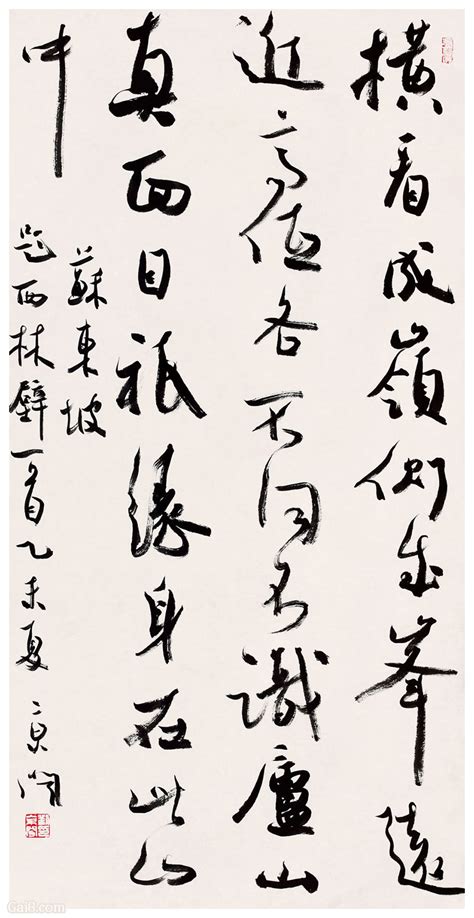 橫看成嶺側成峯遠
近高低各不同不識廬山
真面目祇緣身在此山
中
蘇東坡
題西林壁一首乙未夏
Gai8.com